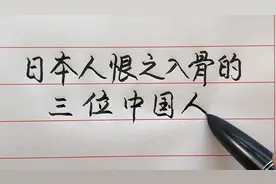 日本人恨之入骨的
三位中国人